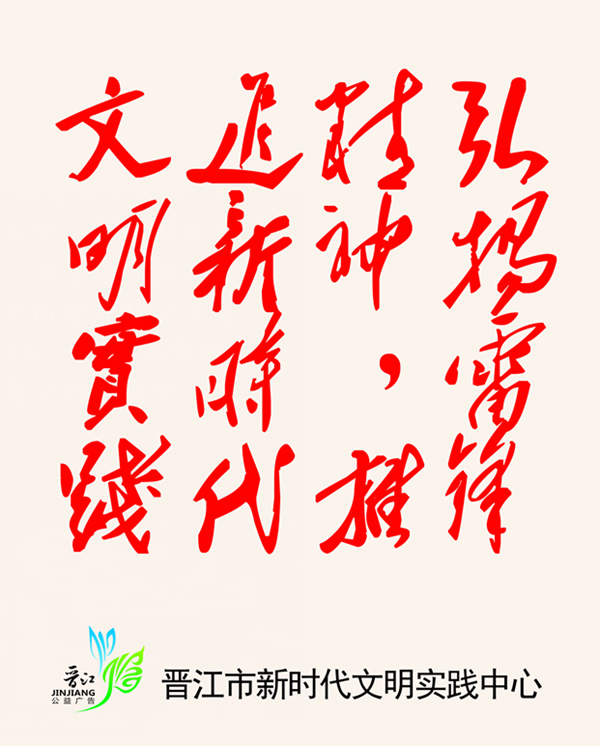 弘揚雷锋
精神，推
進新時代
文明實踐
晋江
JINJIANG
公益广告
晋江市新时代文明实践中心